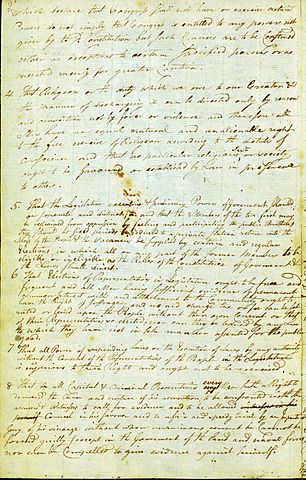 which declare that Congress shall not have or exercise certain
Powers do not imply that Congress is entitled to any powers not
given by the Constitution but such Clauses are to be Construed
either as exceptions to certain specified powers or as
inserted merely for greater Caution
4 That Religion or the duty which we owe to our Creator &
the manner of discharging it can be directed only by reason
and conviction not by force or violence and therefore all
Men have an equal natural and unalienable right
to the free exercise of Religion according to the dictates of
conscience and that no particular religious or society
ought to be favored or established by Law in preference
to others
5 That the Legislative executive & judiciary Powers of Government should
be separate and distinct and that the Members of the two first may
be restrained from oppression by feeling and participating the public burthens
they should at fixed periods be reduced to a private station return into the
Mass of the People & the Vacancies be supplied by certain and regular
Elections in which all or any part of the former Members to be
eligible or ineligible as the Rules of the Constitution of Government &
the Laws shall direct
6 That Elections of Representatives in Legislature ought to be free and
frequent and all Men having sufficient evidence of permanent
common interest with and attachment to the Community ought to have
the right of Suffrage, and no aid charge tax or fee can be set
rated or levied upon the People without their own Consent or that
of their Representatives so elected, nor can they be bound by any law
to which they have not in like manner assented for the public
good
7 That all Power of suspending Laws or the Execution of Laws by any authority
without the Consent of the Representatives of the People in the Legislature
is injurious to their Rights and ought not to be exercised
8 That in all Capital & Criminal Prosecutions every Man hath a Right to
demand the Cause and nature of his accusation to be confronted with the
accusers & Witnesses to call for evidence and be allowed
in his favor and to a fair and speedy trial by an impartial
Jury of his vicinage without whose unanimous consent he Cannot be
found guilty (except in the Government of the land and naval forces)
nor can he be Compelled to give evidence against himself